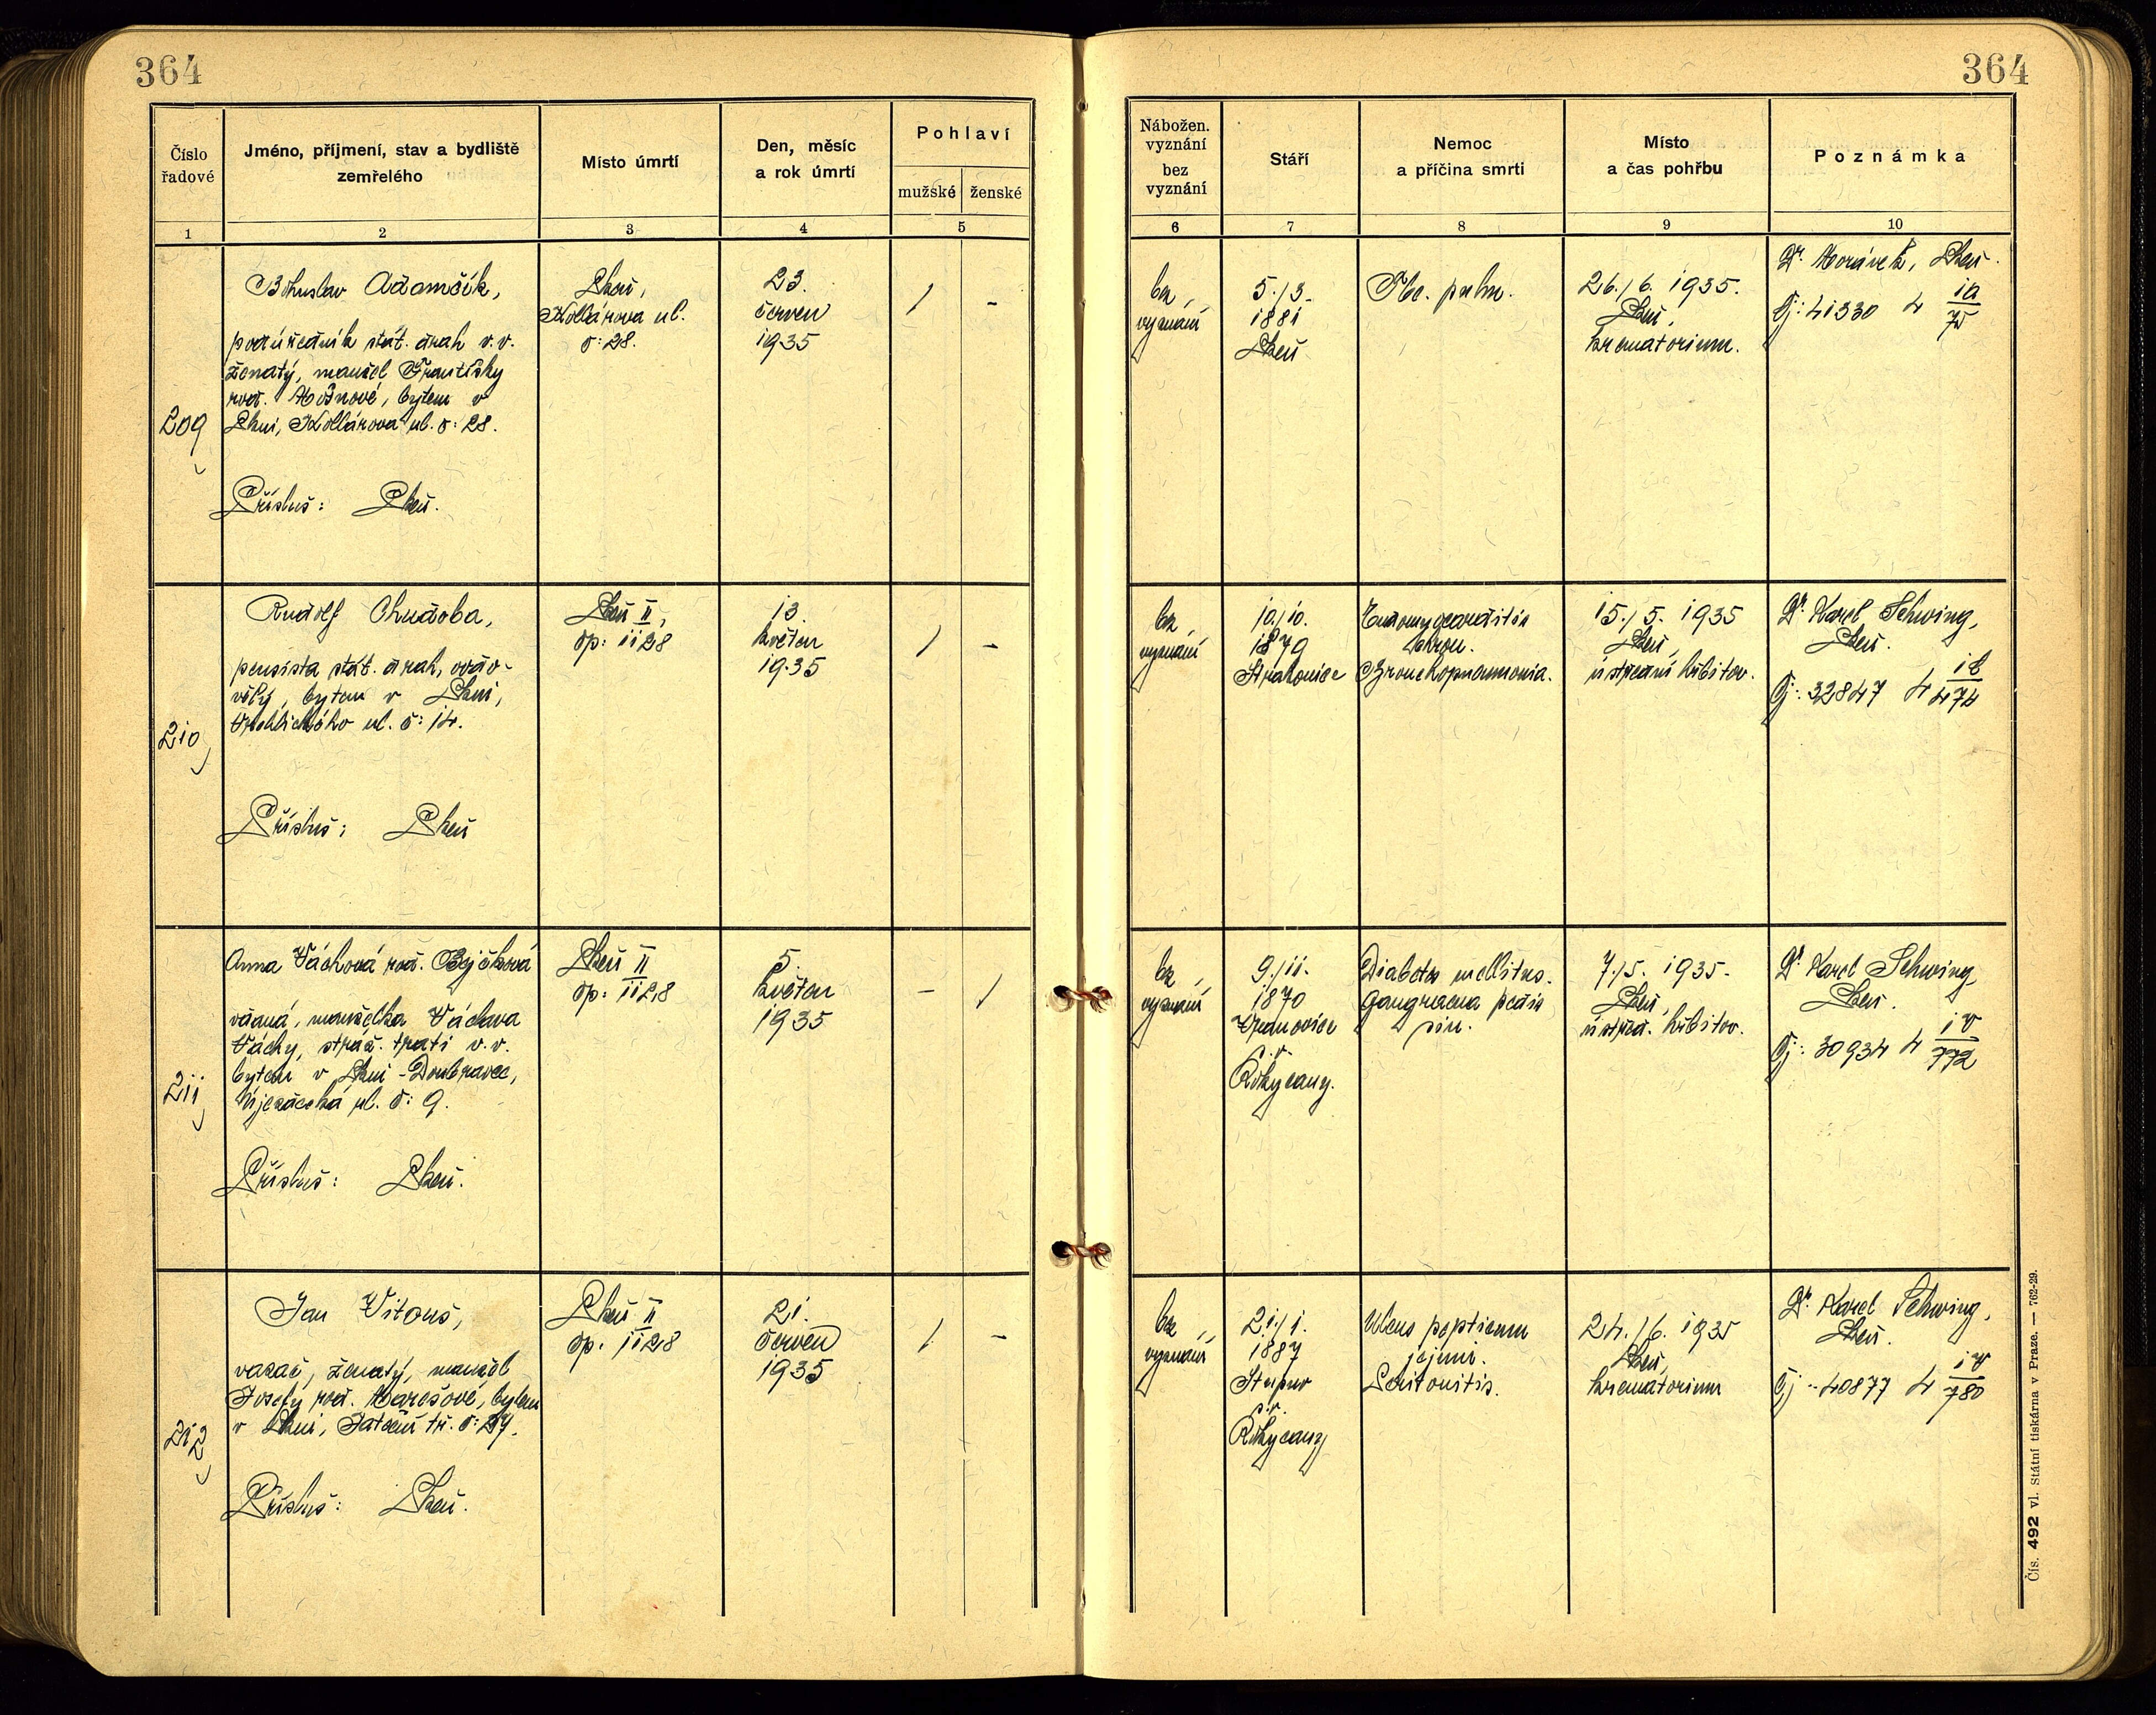 364
364
Číslo
řadové
Jméno, příjmení, stav a bydliště
zemřelého
Místo úmrtí
Den, měsíc
a rok úmrtí
Pohlaví
mužské
ženské
Nábožen.
vyznání
bez
vyznání
Stáří
Nemoc
a příčina smrti
Místo
a čas pohřbu
Poznámka
1
2
3
4
5
6
7
8
9
10
209
Bohuslav Adamčík,
podúředník stát. drah v.v.
ženatý, manžel Františky
roz. bytem v
Plzni, Kollárova ul. č: 28.
Přísluš: Plzeň.
Plzeň,
Kollárova ul.
č: 28.
23.
červen
1935
/
-
bez
vyznání
5./3.
1881
Plzeň
Tbc. pulm.
26./6. 1935.
Plzeň,
krematorium.
Dr. Morávek, Plzeň.
Čj: 41330 4 1a/75
210
Rudolf Chudoba,
pensista stát. drah, ovdo-
vělý, bytem v Plzni,
Vrchlického ul. č: 14.
Přísluš: Plzeň
Plzeň II,
čp: 1128
13.
květen
1935
/
-
bez
vyznání
10./10.
1879
Strakonice
Endomyocarditis
chron.
Bronchopneumonia.
15./5. 1935
Plzeň,
ústřední hřbitov.
Dr. Karel Schwing,
Plzeň.
Čj: 32847 4 1b/474
211
Anna Váchová roz. Bejčková
vdaná, manželka Václava
Váchy, stráž. trati v.v.
bytem v Plzni-Doubravce,
Újezdecká ul. č: 9.
Přísluš: Plzeň.
Plzeň II
čp: 1128
5.
květen
1935
-
/
bez
vyznání
9./11.
1870
Vranovice
p.r.
Rokycany.
Diabetes mellitus.
Gangraena pedis
sin.
7./5. 1935.
Plzeň,
ústřed. hřbitov.
Dr. Karel Schwing,
Plzeň.
Čj: 30934 4 1v/772
212
Jan Vitouš,
vazač, ženatý, manžel
Josefy roz. Marešové, bytem
v Plzni, Jateční tř. č: 27.
Přísluš: Plzeň.
Plzeň II
čp. 1128
21.
červen
1935
/
-
bez
vyznání
21./1.
1887
Stupno
p.r.
Rokycany
Ulcus pepticum
jejuni.
Peritonitis.
24./6. 1935
Plzeň,
krematorium
Dr. Karel Schwing,
Plzeň.
Čj: 40877 4 1v/780
Čís. 492 vl. Státní tiskárna v Praze. — 762-29.